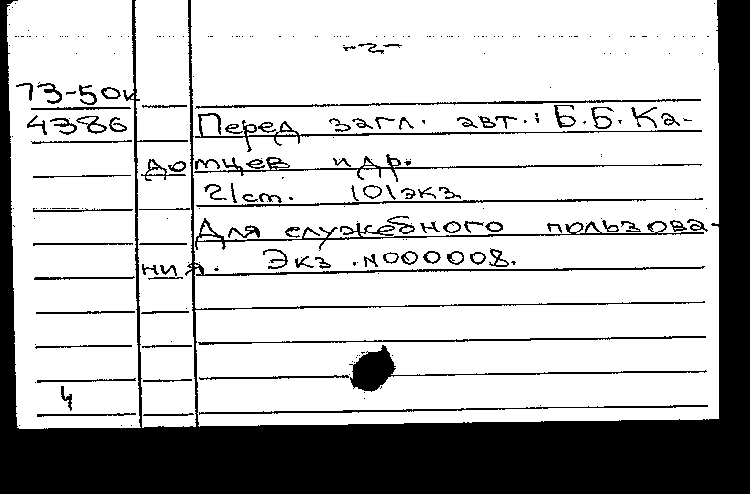 -2-
73-50к
4386 Перед загл. авт.: Б.Б. Ка-
домцев и др.
21 ст. 101 экз.
Для служебного пользова-
ния. Экз. N000008.
4